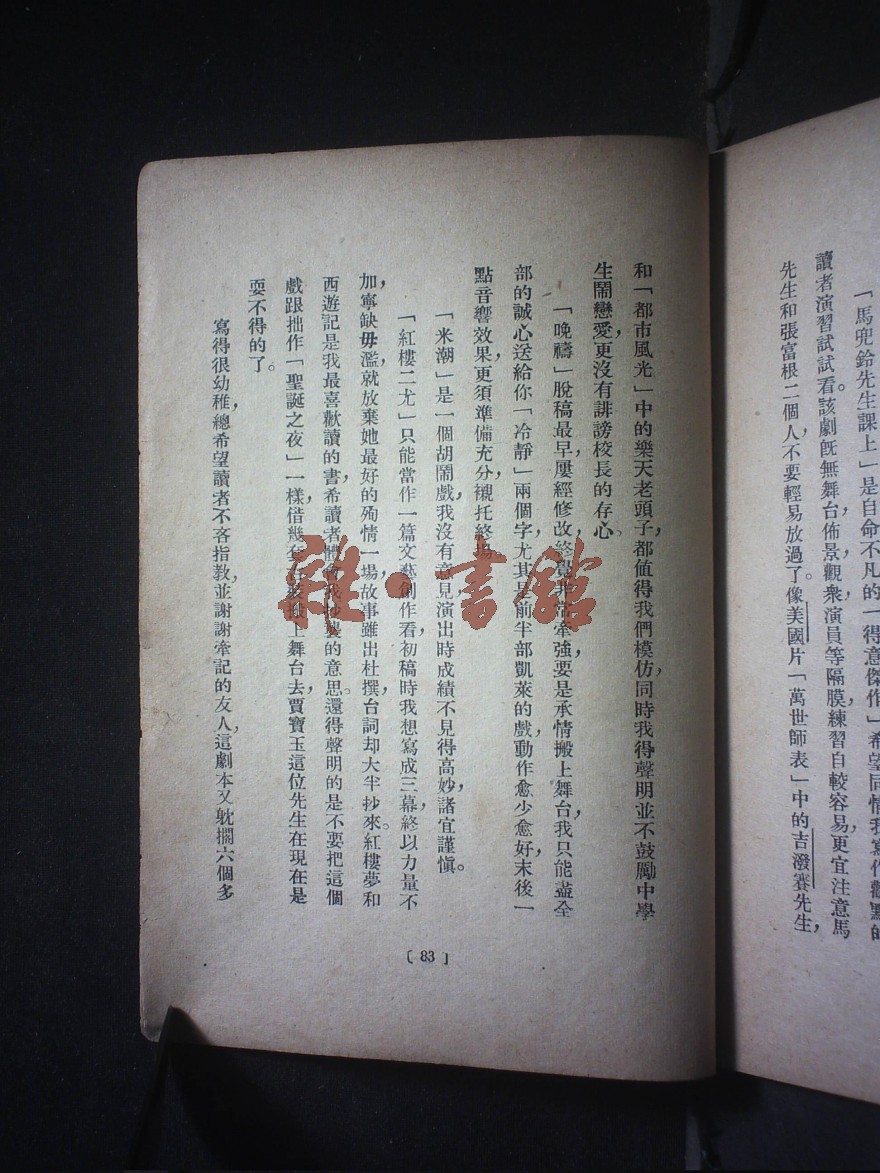 「馬兜鈴先生課上」是自命不凡的一得意傑作，希望同情我寫作觀點的
讀者演習試試看。該劇既無舞台，佈景，觀衆，演員等隔膜，練習自較容易，更宜注意馬
先生和張富根二個人，不要輕易放過了。像美國片「萬世師表」中的吉潑賽先生，
和「都市風光」中的樂天老頭子，都值得我們模仿，同時我得聲明，並不鼓勵中學
生鬧戀愛，更沒有誹謗校長的存心。
「晚禱」脫稿最早，屢經修改，終覺非常牽強，要是承情搬上舞台，我只能盡全
部的誠心，送給你「冷靜」兩個字，尤其是前半部凱萊的戲，動作愈少愈好，末後一
點音響效果，更須準備充分，襯托終場。
「米潮」是一個胡鬧戲，我沒有意見，演出時成績不見得高妙，諸宜謹慎。
「紅樓二尤」只能當作一篇文藝創作看，初稿時我想寫成三幕，終以力量不
加，寧缺毋濫，就放棄她最好的殉情一場，故事雖出杜撰，台詞却大半抄來。紅樓夢和
西遊記是我最喜歡讀的書，希讀者體會我抄襲的意思。還得聲明的是不要把這個
戲跟拙作「聖誕之夜」一樣，借幾套古裝搬上舞台去，賈寶玉這位先生在現在是
耍不得的了。
寫得很幼稚，總希望讀者不吝指教，並謝謝牽記的友人，這劇本又躭擱六個多
〔 83 〕
雜·書館